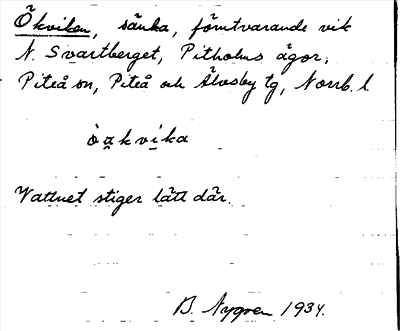 Ökviken, sänka, förutvarande vik
N. Svartberget, Pitholms ägor,
Piteå sn, Piteå och Älvsby tg, Norrb. l.
ò a̤ k v i̤ k a
Vattnet stiger lätt där.
B. Nygren 1934.